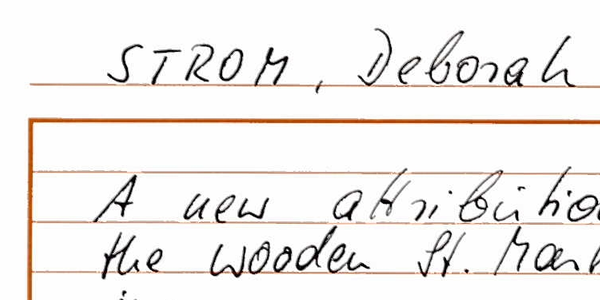 STROM, Deborah
A new attributio
the wooden St. Mark